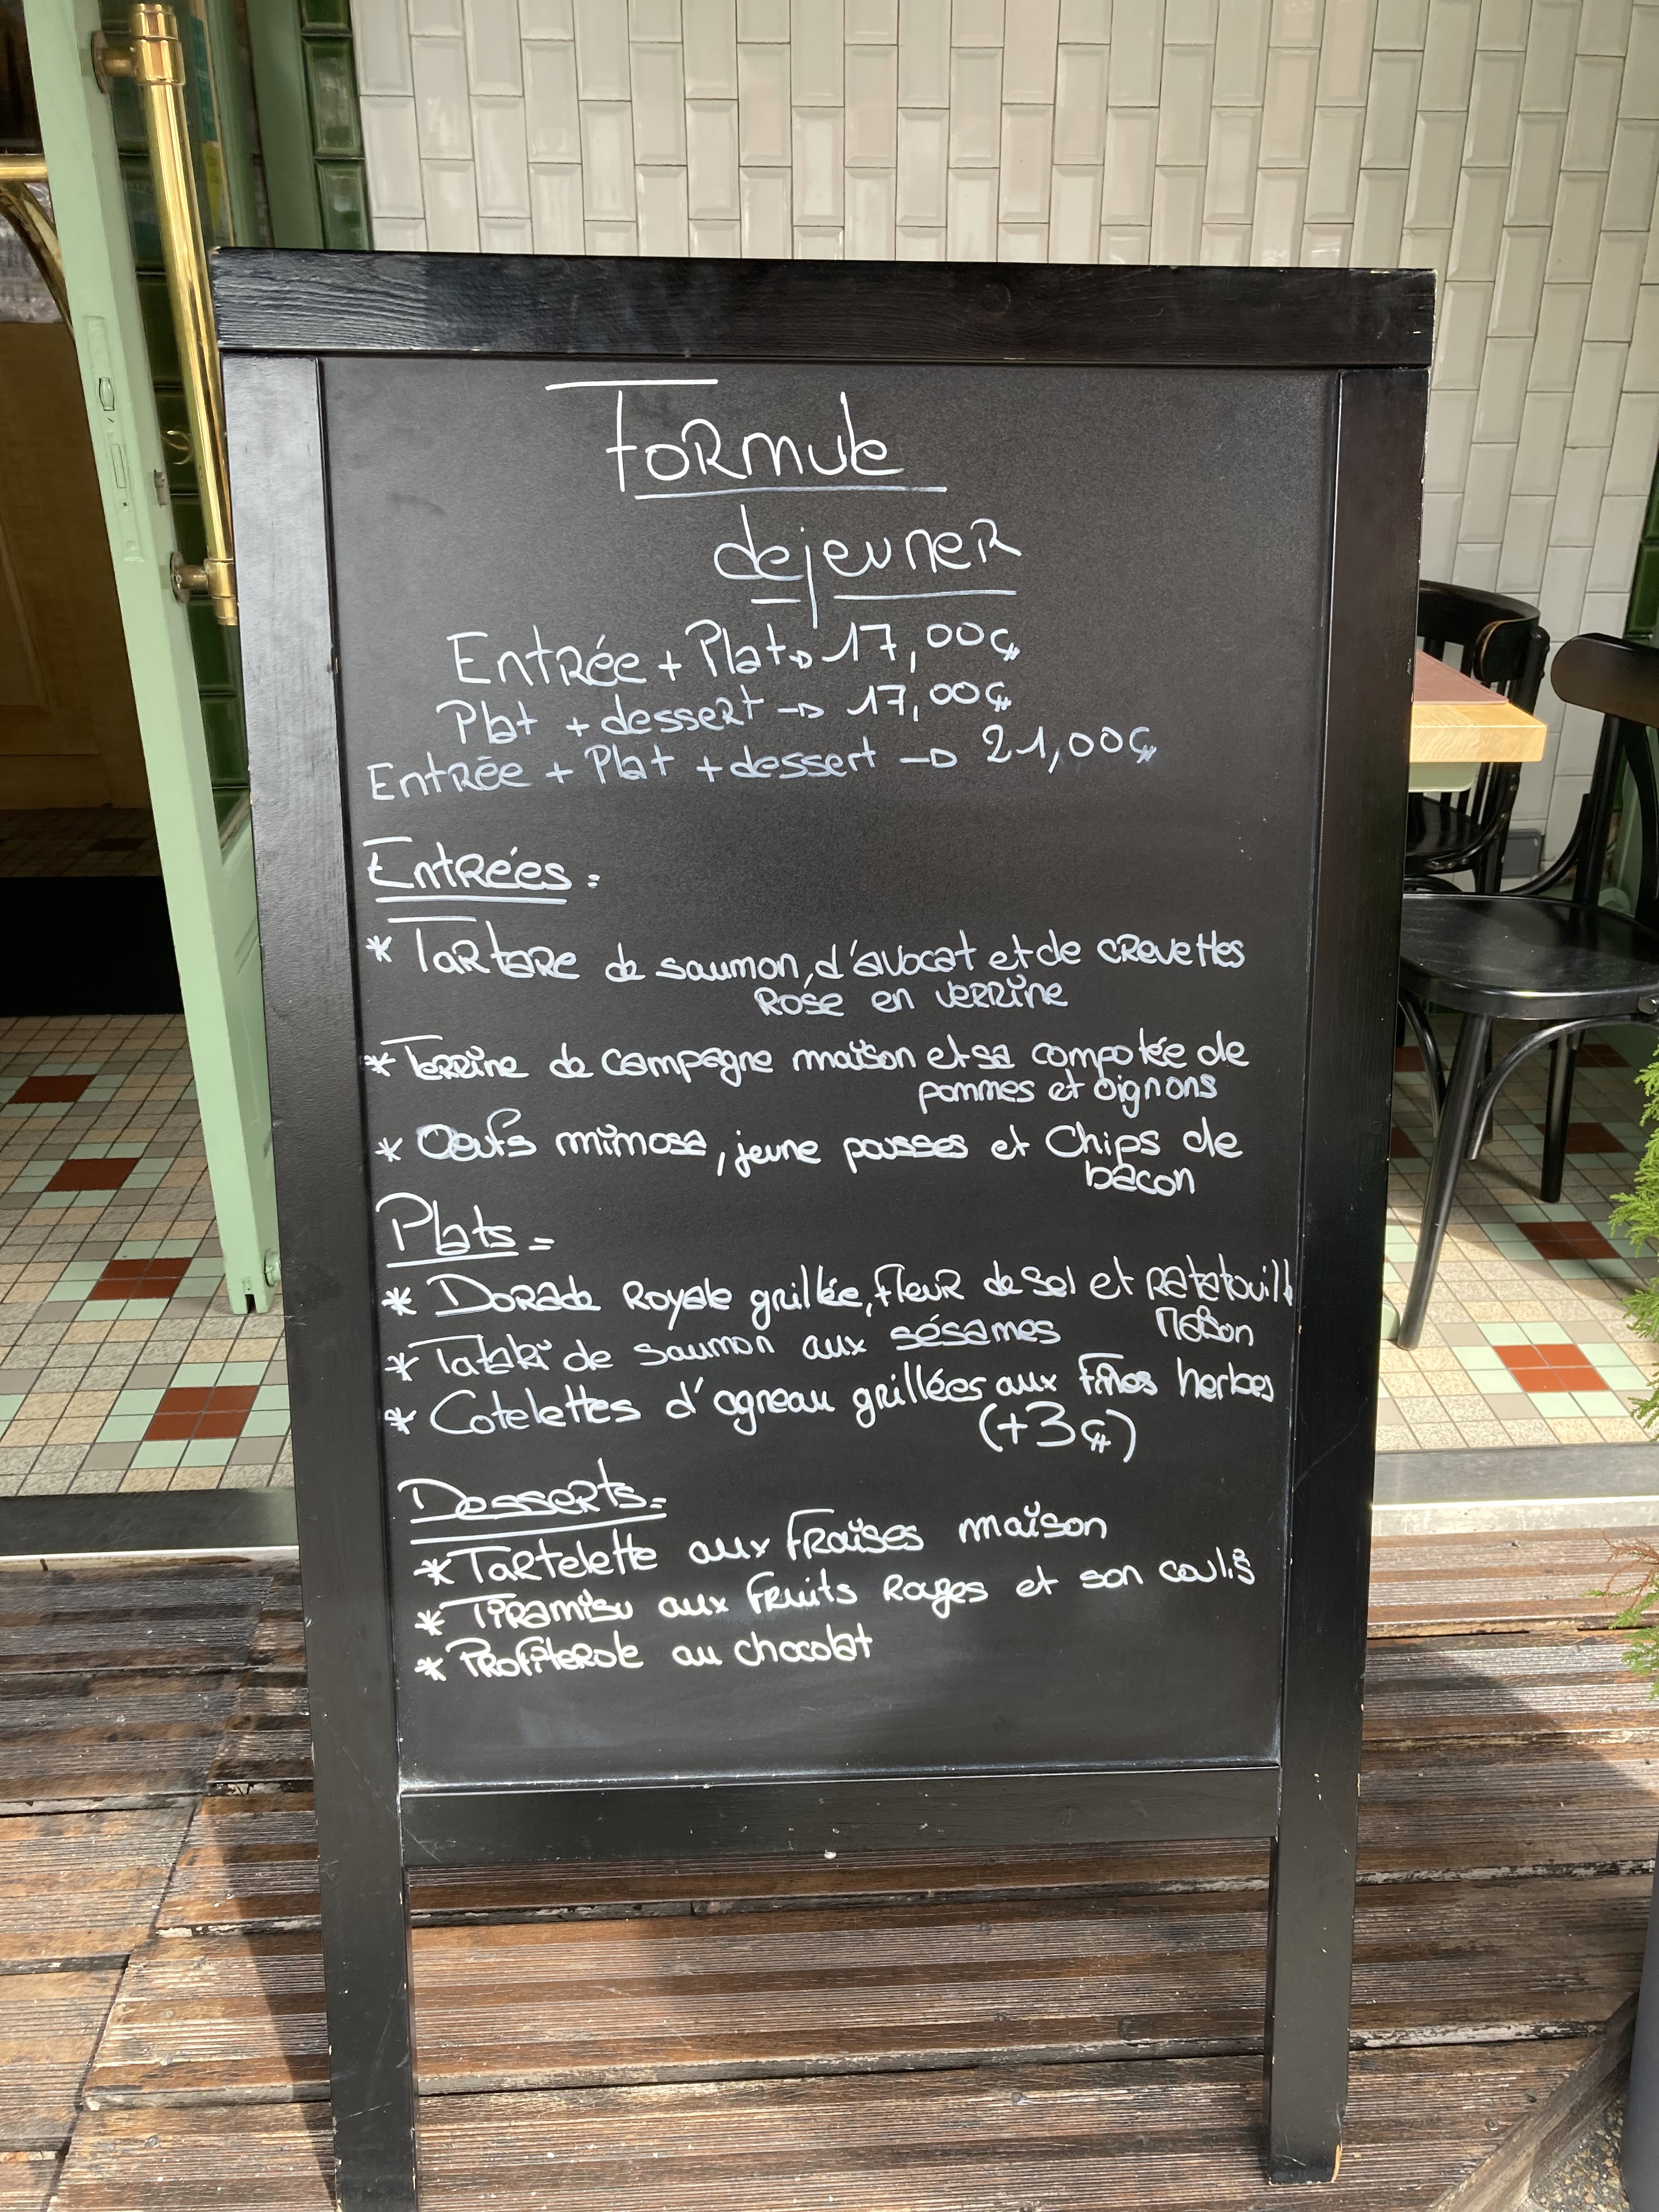 Formule
dejeuner
Entrée + Plat → 17,00€
Plat + dessert → 17,00€
Entrée + Plat + dessert → 21,00€
Entrées :
* Tartare de saumon, d'avocat et de crevettes
rose en verrine
* Terrine de campagne maison et sa compotée de
pommes et oignons
* Oeufs mimosa, jeune pousses et chips de
bacon
Plats =
* Dorade Royale grillée, fleur de sel et ratatouille
Maison
* Tataki de saumon aux sésames
* Cotelettes d'agneau grillées aux fines herbes
(+3€)
Desserts =
* Tartelette aux fraises maison
* Tiramisu aux fruits rouges et son coulis
* Profiterole au chocolat